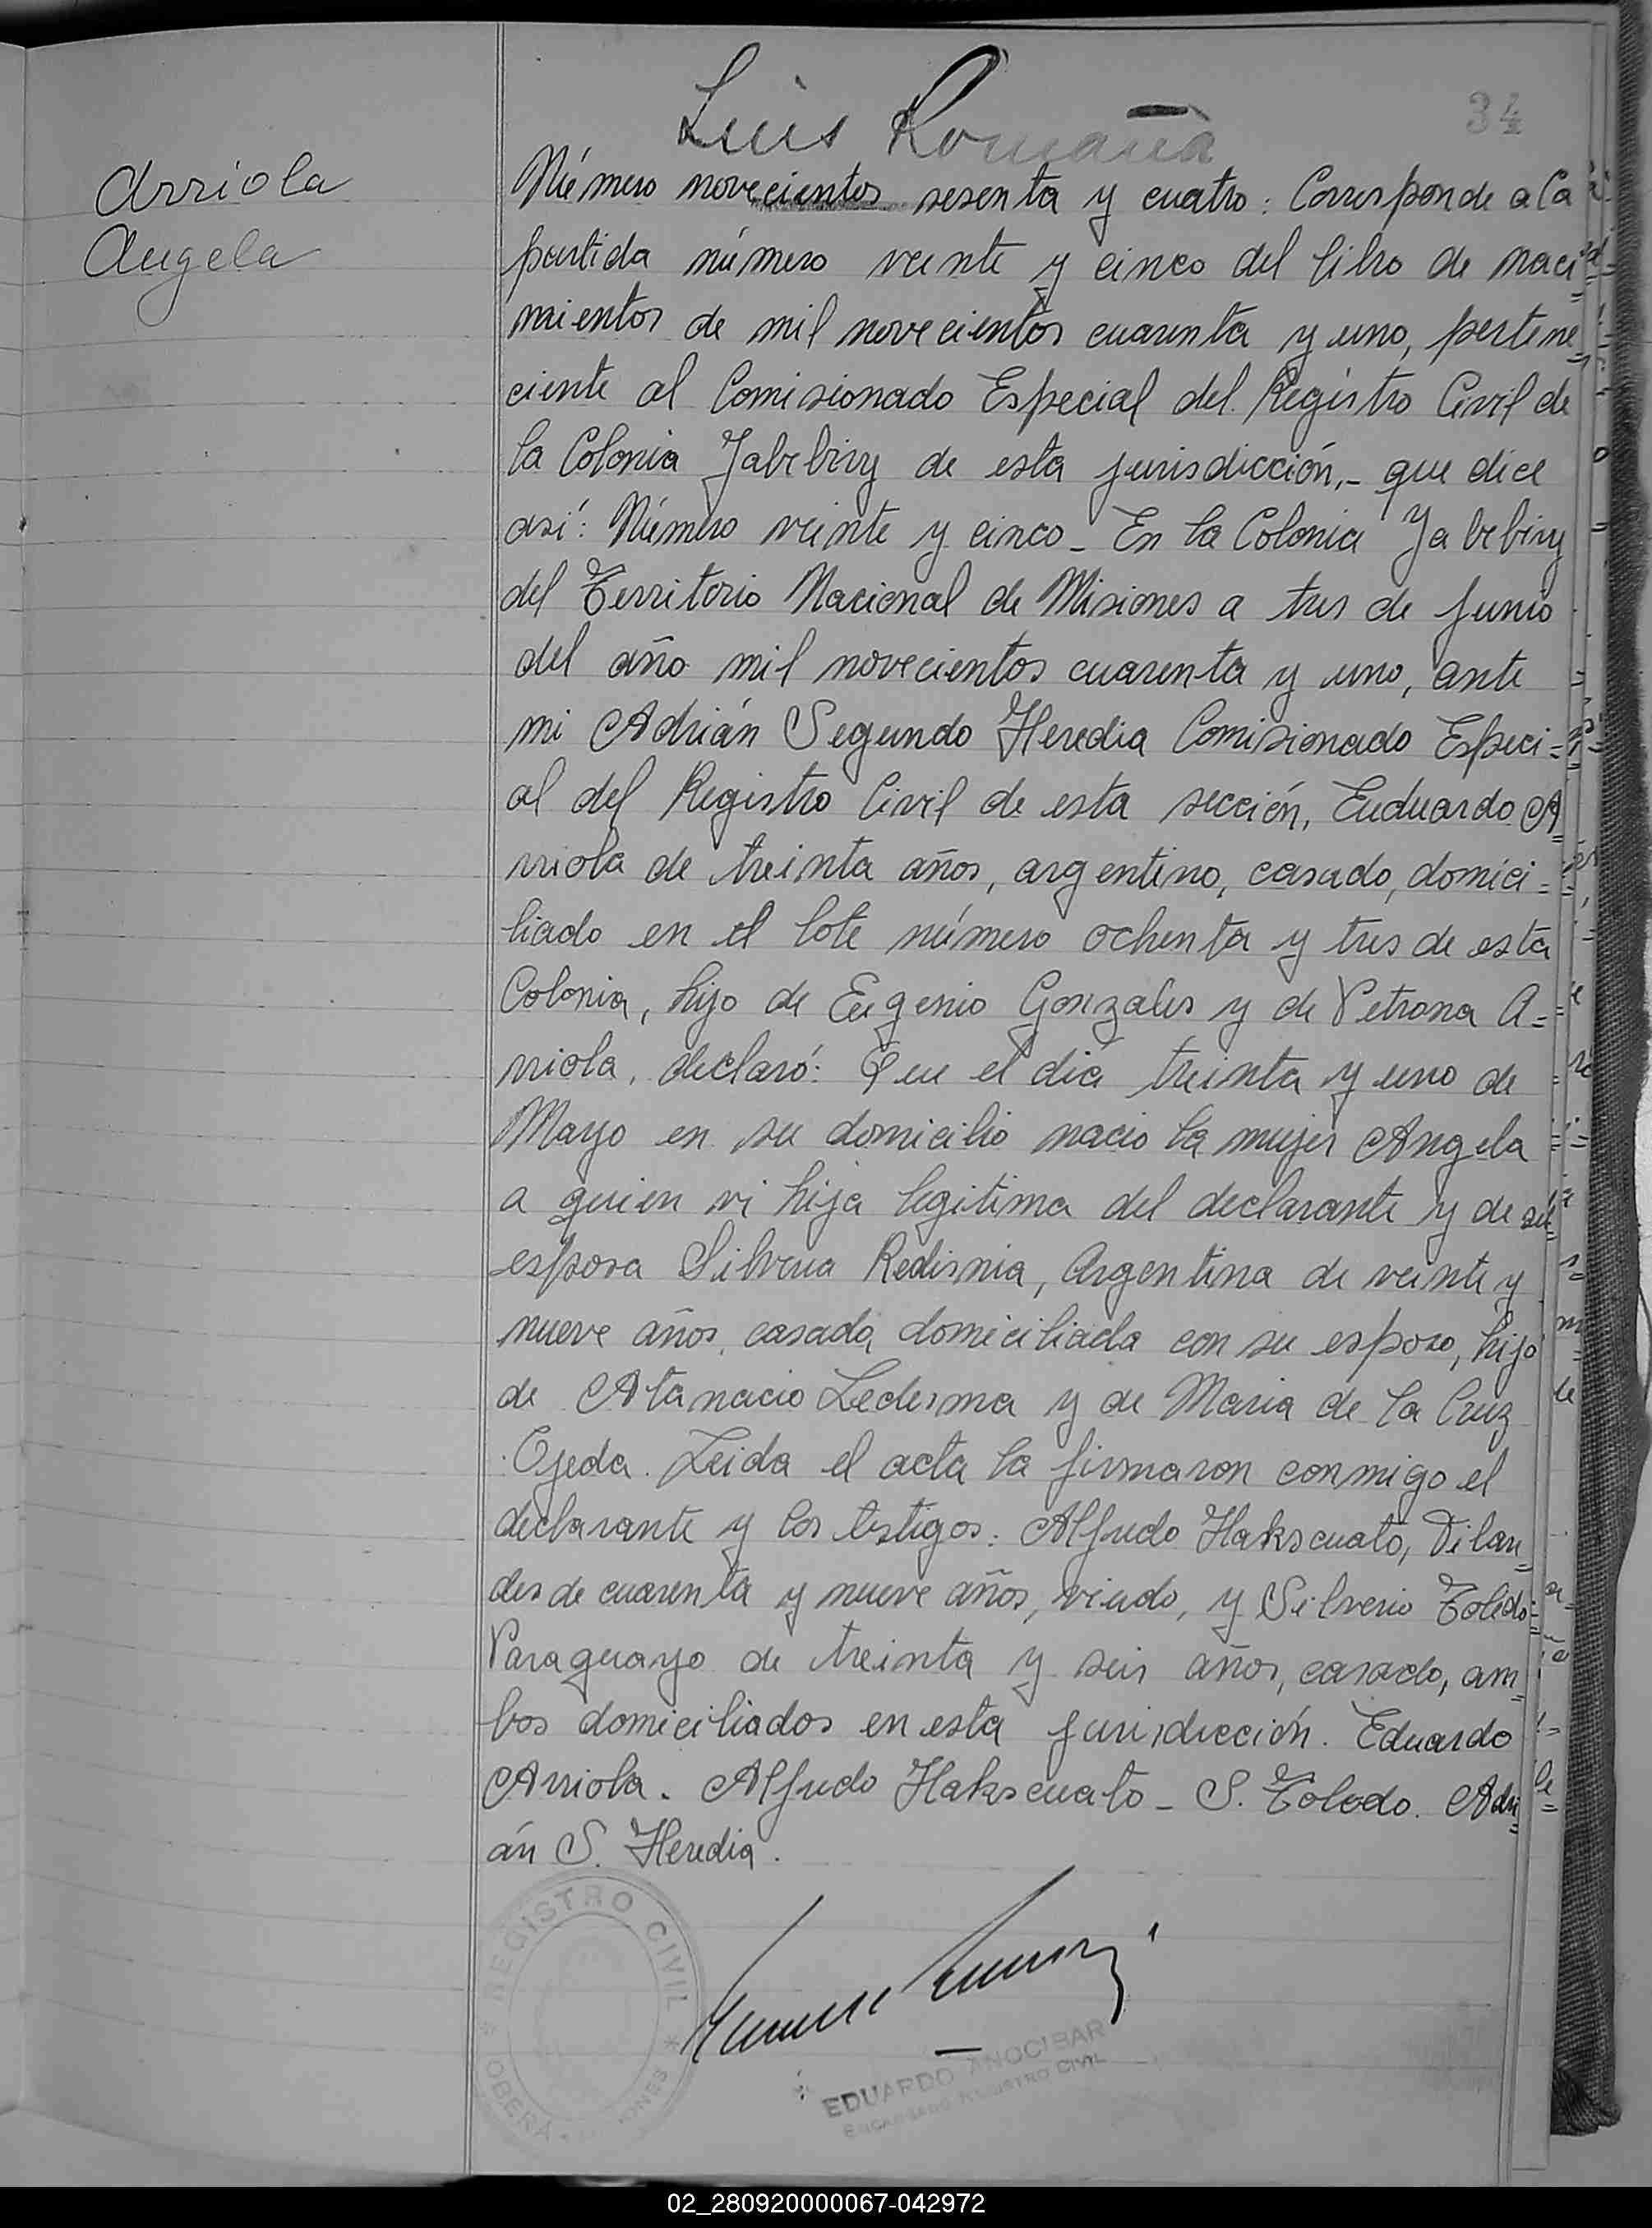 Luis Romaña
34
Arriola
Angela
Número novecientos sesenta y cuatro: Corresponde a la
partida número veinte y cinco del libro de naci=
mientos de mil novecientos cuarenta y uno, pertene=
ciente al Comisionado Especial del Registro Civil de
la Colonia Yabebiry de esta jurisdicción,- que dice
asi: Número veinte y cinco - En la Colonia Yabebiry
del Territorio Nacional de Misiones a tres de junio
del año mil novecientos cuarenta y uno, ante
mi Adrián Segundo Heredia Comisionado Especi=
al del Registro Civil de esta sección, Euduardo A=
rriola de treinta años, argentino, casado, domici=
liado en el lote número ochenta y tres de esta
Colonia, hijo de Eugenio Gonzales y de Petrona A=
rriola, declaró: Que el día treinta y uno de
Mayo en su domicilio nacio la mujer Angela
a quien vi hija legitima del declarante y de su
esposa Silveria, Argentina de veinte y
nueve años, casada, domiciliada con su esposo, hija
de Atanacio Ledesma y de Maria de la Cruz
Ojeda. Leida el acta la firmaron conmigo el
declarante y los testigos: Alfredo Hakscuato,
des de cuarenta y nueve años, viudo, y Silverio Toledo=
Paraguayo de treinta y seis años, casado, am=
bos domiciliados en esta jurisdicción. Eduardo
Arriola. Alfredo Hakscuato - S. Toledo. Adri=
án S. Heredia.
REGISTRO CIVIL
OBERÁ
EDUARDO ANOCIBAR
ENCARGADO REGISTRO CIVIL
02_280920000067-042972